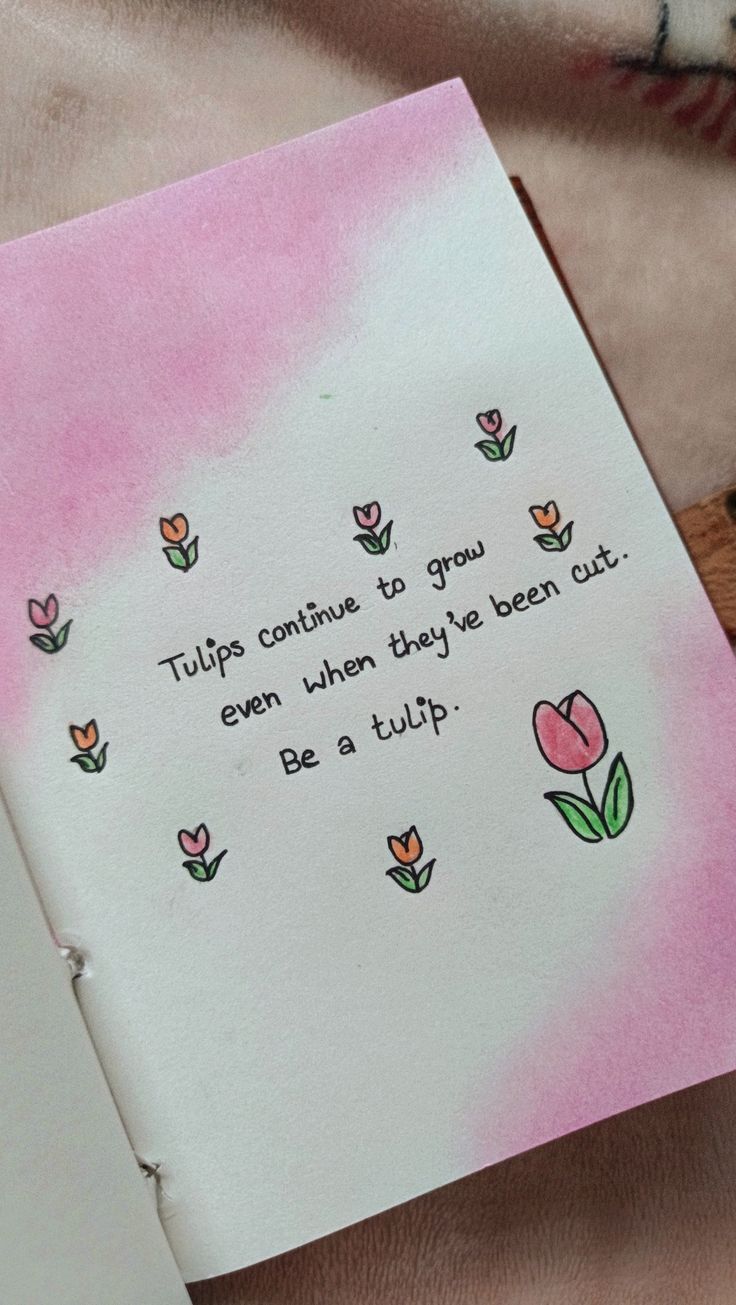 Tulips continue to grow
even when they've been cut.
Be a tulip.